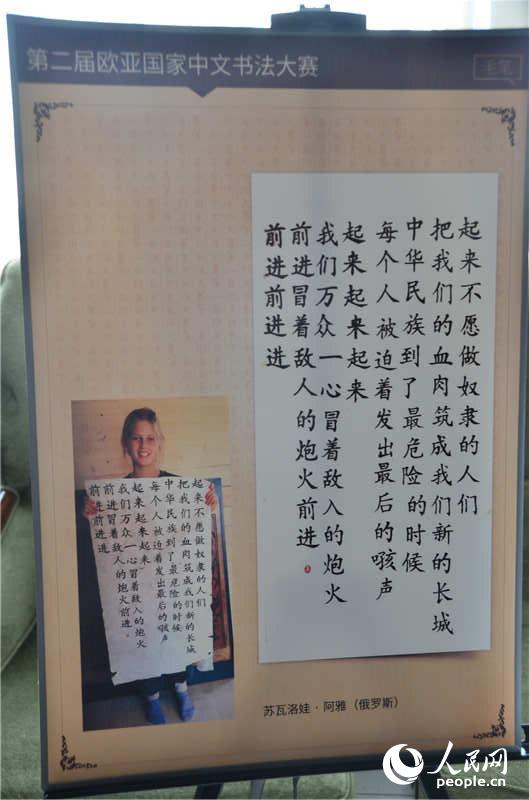 第二届欧亚国家中文书法大赛
毛笔
起来不愿做奴隶的人们
把我们的血肉筑成我们新的长城
中华民族到了最危险的时候
每个人被迫着发出最后的声
起来起来起来
我们万众一心冒着敌入的炮火
前进冒着敌人的炮火前进
前进前进进
起来不愿做奴隶的人们
把我们的血肉筑成我们新的长城
中华民族到了最危险的时候
每个人被迫着发出最后的声
起来起来起来
我们万众一心冒着敌入的炮火
前进冒着敌人的炮火前进。
前进前进进
苏瓦洛娃·阿雅（俄罗斯）
人民网
people.cn